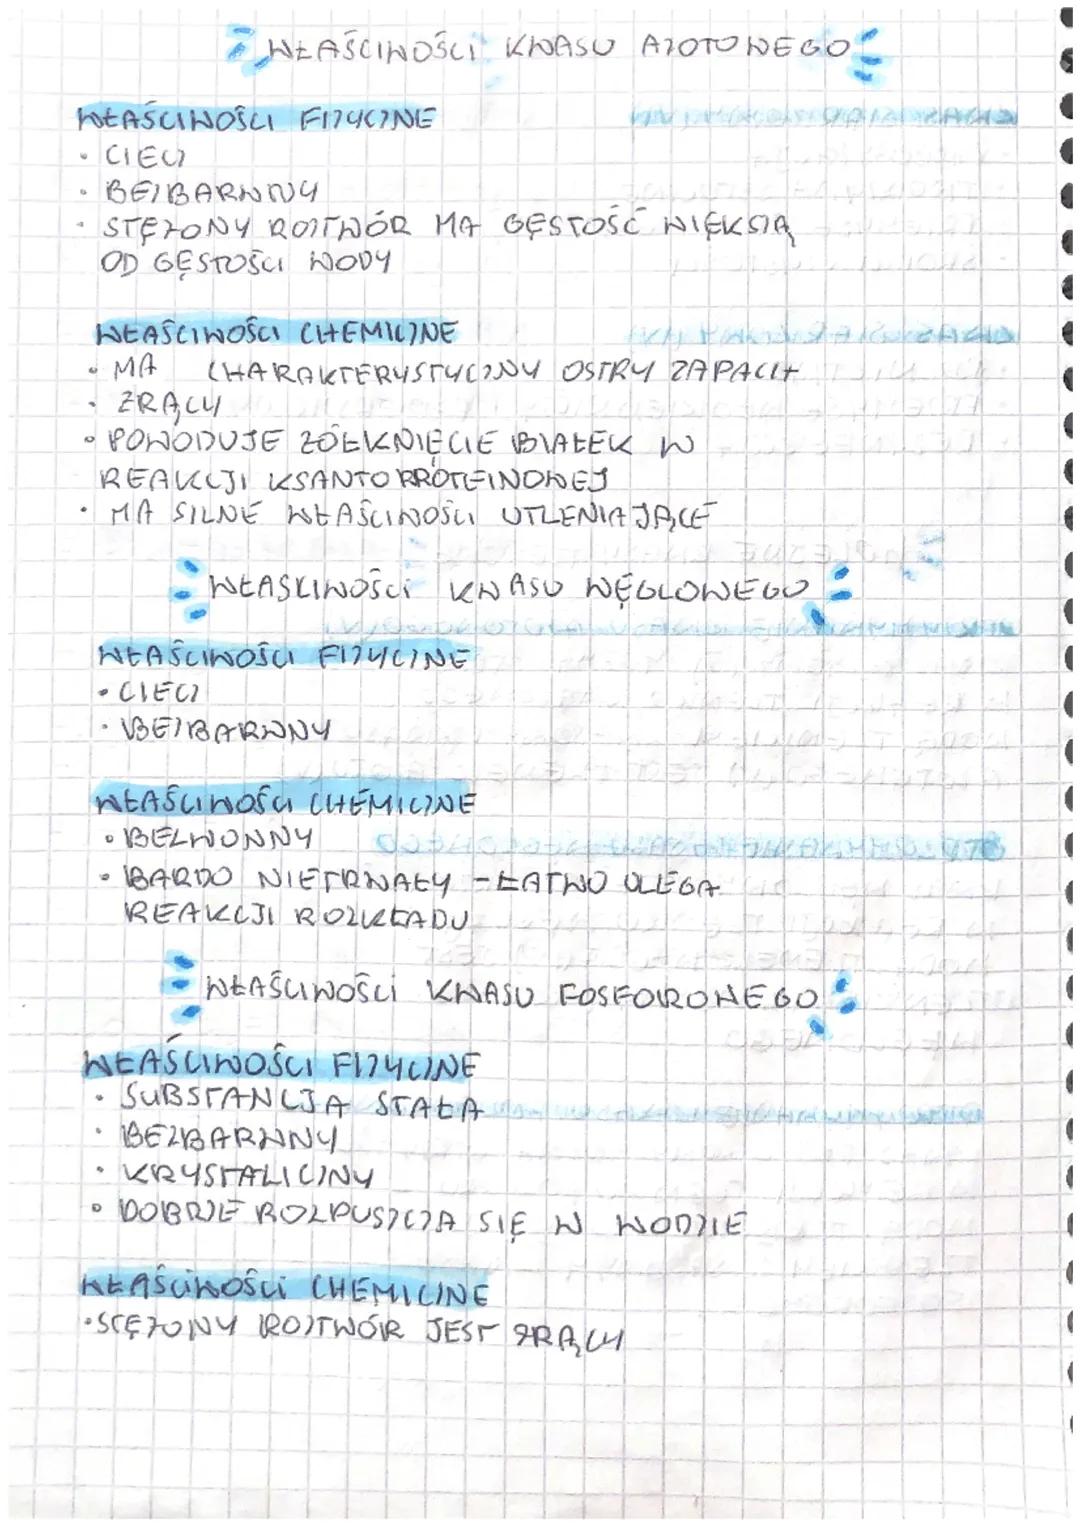 WŁAŚCIWOŚCI KWASU AZOTOWEGO
WŁAŚCIWOŚCI FIZYCZNE
• CIECZ
• BEZBARWNY
• STĘŻONY ROZTWÓR MA GĘSTOŚĆ WIĘKSZĄ
OD GĘSTOŚCI WODY
WŁAŚCIWOŚCI CHEMICZNE
• MA CHARAKTERYSTYCZNY OSTRY ZAPACH
• ŻRĄCY
• POWODUJE ŻÓŁKNIĘCIE BIAŁEK W
REAKCJI KSANTOPROTEINOWEJ
• MA SILNE WŁAŚCIWOŚCI UTLENIAJĄCE
WŁAŚCIWOŚCI KWASU WĘGLOWEGO
WŁAŚCIWOŚCI FIZYCZNE
• CIECZ
• BEZBARWNY
WŁAŚCIWOŚCI CHEMICZNE
• BEZWONNY
• BARDZO NIETRWAŁY - ŁATWO ULEGA
REAKCJI ROZKŁADU
WŁAŚCIWOŚCI KWASU FOSFOROWEGO
WŁAŚCIWOŚCI FIZYCZNE
• SUBSTANCJA STAŁA
• BEZBARWNY
• KRYSTALICZNY
• DOBRZE ROZPUSZCZA SIĘ W WODZIE
WŁAŚCIWOŚCI CHEMICZNE
• STĘŻONY ROZTWÓR JEST ŻRĄCY